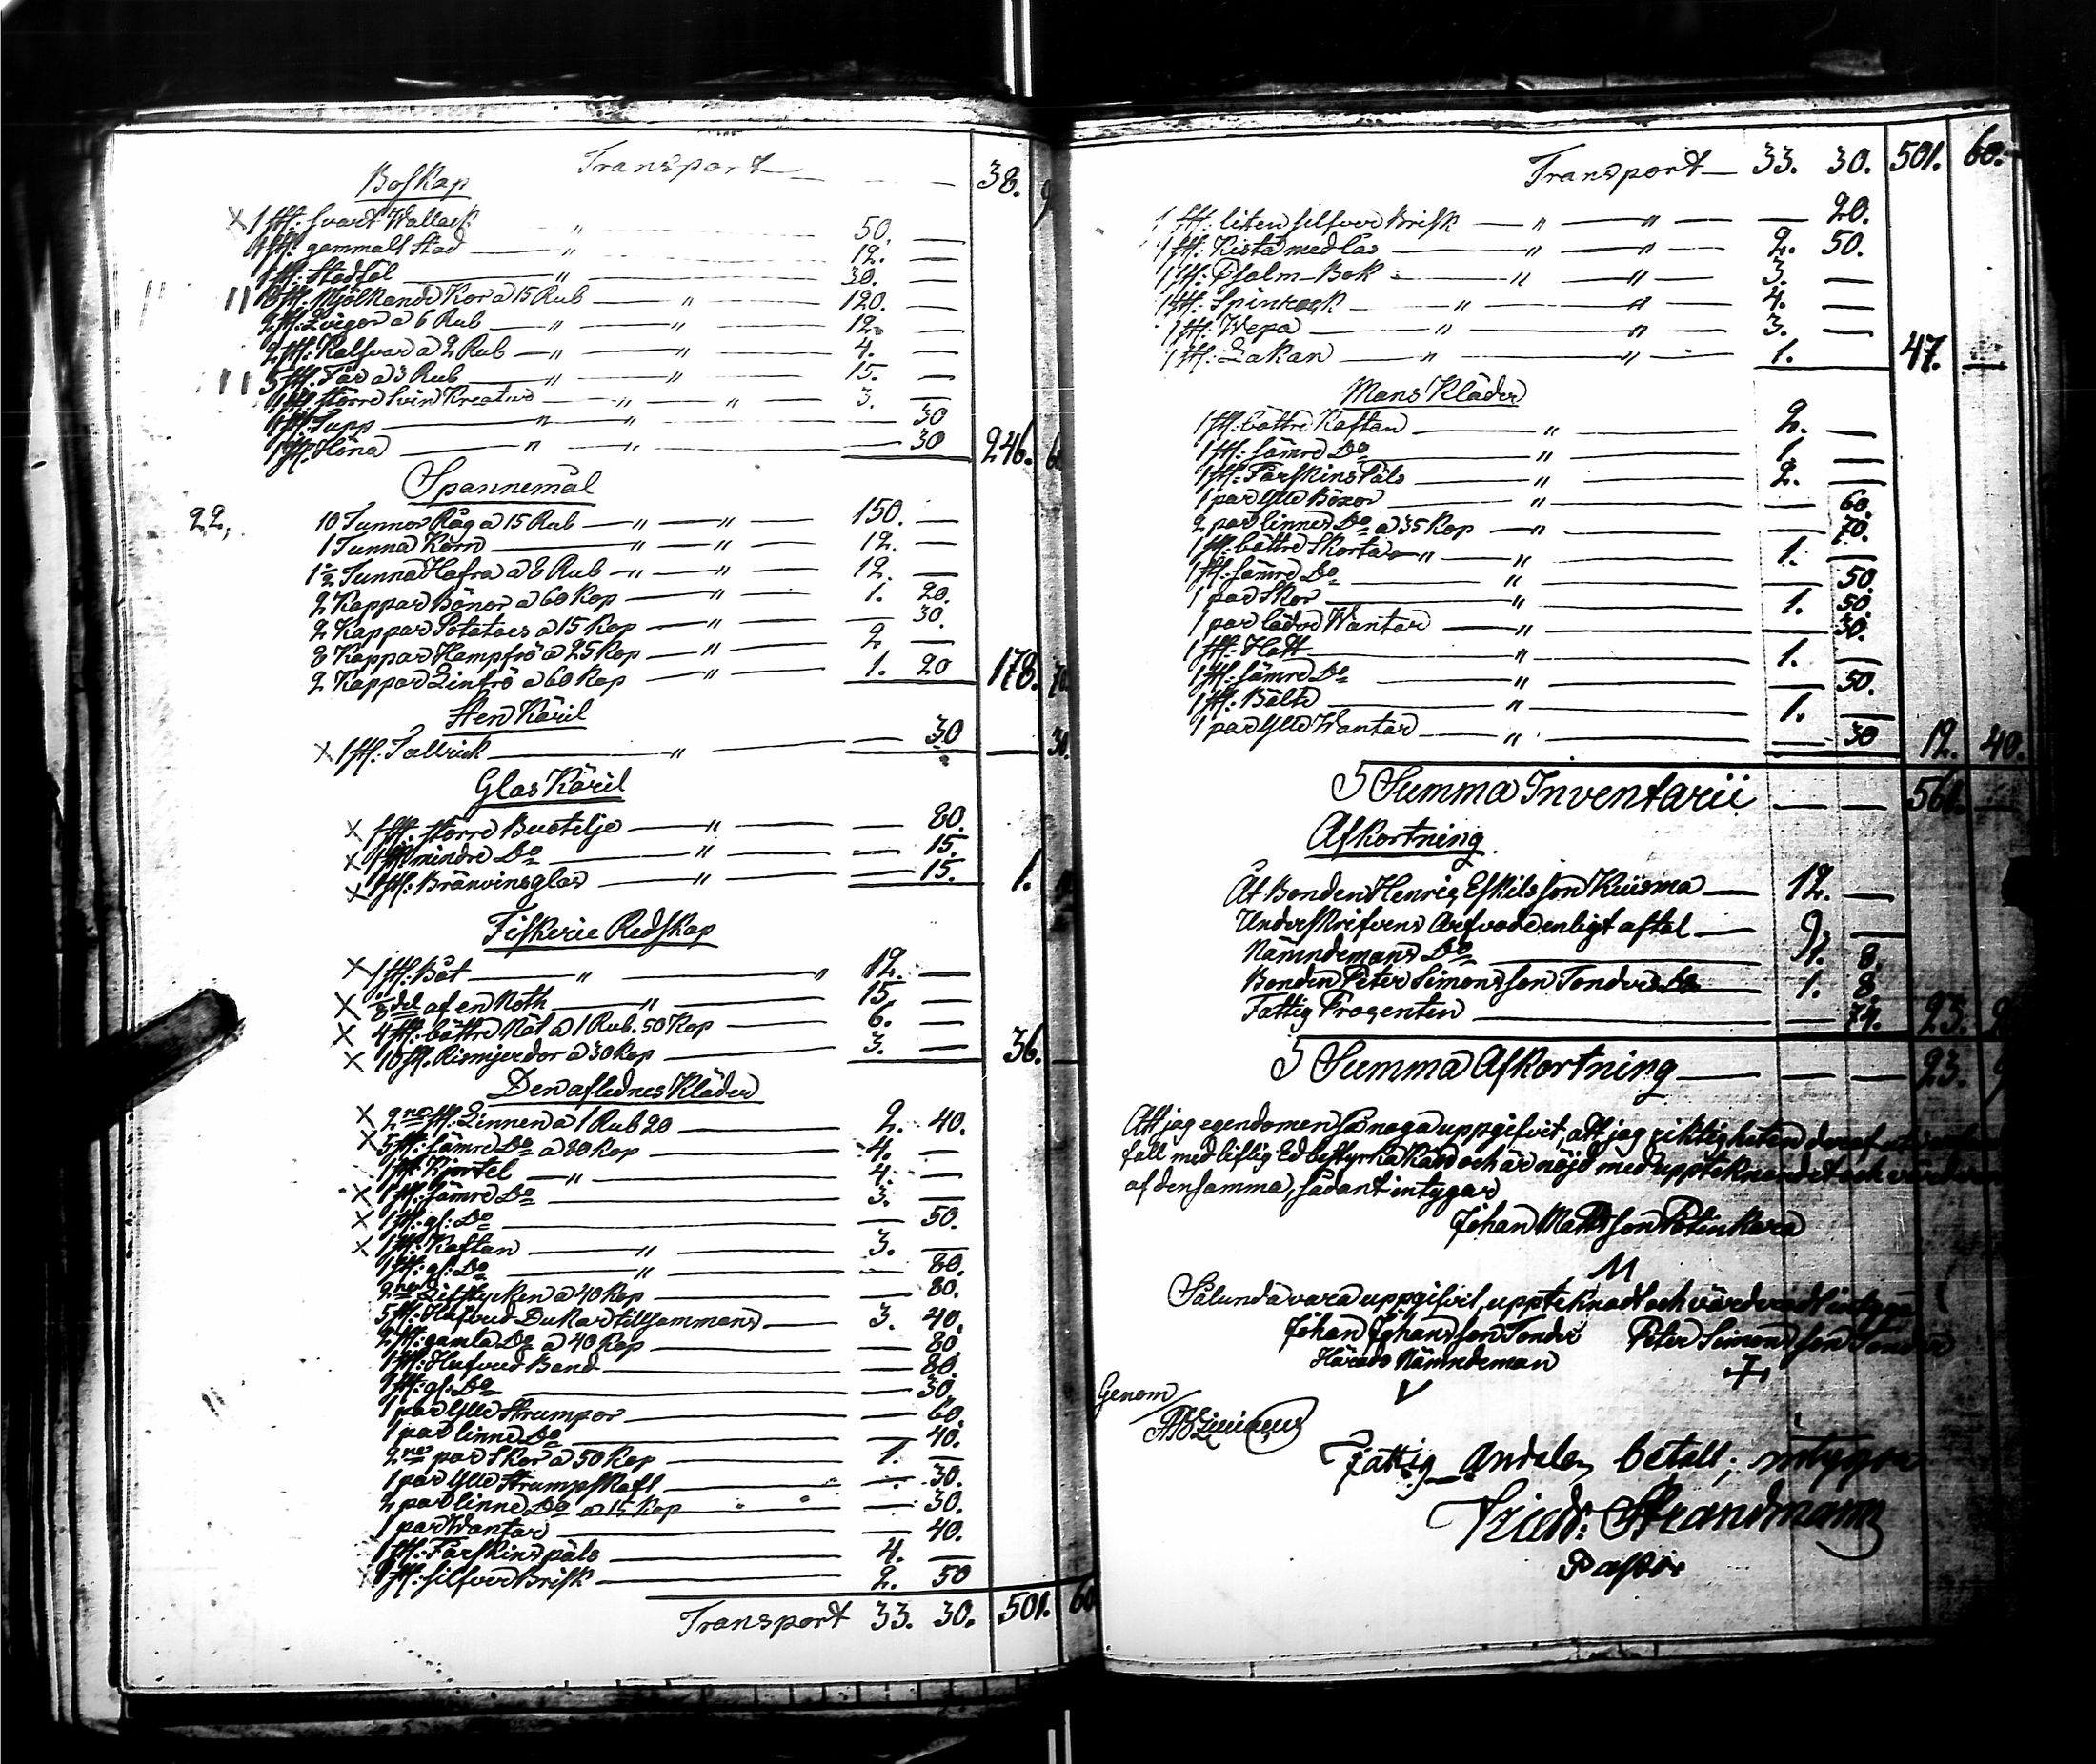 Transport — — — 38. 9
Boskap
1 st: svart Wallack " 50. —
1 st: gammalt Stod — " 12. —
1 st: Stodföl — " — 30. —
8 st: Mjölkande Kor a 15 Rub — " — 120. —
2 st: Qvigor a 6 Rub — " — " — 12. —
2 st: Kalfvar a 2 Rub — " — " — 4. —
5 st: Får a 3 Rub — " — " — 15. —
1 st: större Svin Kreatur — " — " — 3. —
1 st: Tupp — " — " — 30
1 st: Höna — " — " — 30 246. 60
Spannemål
22,
10 Tunnor Råg a 15 Rub — " — " — 150. —
1 Tunna Korn — " — " — 12. —
1½ Tunna Hafra a 8 Rub — " — " — 12. —
2 Kappar Bönor a 60 Kop — " — 1. 20.
2 Kappar Potatoes a 15 Kop — " — — 30.
8 Kappar Hampfrö a 25 Kop — " — 2 —
2 Kappar Linfrö a 60 Kop — " — 1. 20 178. 70
Sten Käril
x 1 st: Tallrick — " — — 30 — 30.
Glas Käril
x 1 st: större Buotelje — " — — 80.
x 1 st: mindre Do — " — — 15.
x 1 st: Bränvinsglas — " — — 15. 1. 10
Fiskerie Redskap
x 1 st: Båt — " — " 12. —
x 1/8 del af en Noth — " — 15. —
x 4 st: bättre Nät a 1 Rub. 50 Kop — 6. —
x 10 st. Rismjerdor a 30 Kop — 3. — 36. —
Den aflednes Kläder
x 2ne st: Linnen a 1 Rub 20 — 2. 40.
x 5 st: sämre Do a 80 Kop — 4. —
1 st: Kjortel — " — 4. —
x 1 st: sämre Do — 3. —
x 1 st: gl: Do — — 50.
x 1 st: Kaftan — " — 3. —
1 st: gl: Do — " — — 80.
2ne Lifstycken a 40 Kop — — 80.
5 st: Hufvud Dukar tillsammans — 3. 40.
2 st: gamla Do a 40 Kop — — 80.
1 st: Hufvud Band — — 80.
1 st: gl: Do — — 30.
1 par Ylle Strumpor — — 60.
1 par linne Do — — 40.
2ne par Skor a 50 Kop — 1. —
1 par Ylle Strumpskaft — — 30.
2 par linne Do a 15 Kop — 30.
1 par Wantar — — 40.
1 st: Fårskins päls — 4. —
1 st: silfver Brisk — 2. 50
Transport 33. 30. 501. 60
Transport — 33. 30. 501. 60.
1 st: liten silfver Brisk — " — " — — 20.
1 st: Kista med Lås — " — " — 2. 50.
1 st: Psalm-Bok — " — " — 3. —
1 st: Spinrock — " — " — 4. —
1 st: Wepa — " — " — 3. —
1 st: Lakan — " — " — 1. 47. —
Mans Kläder
1 st: bättre Kaftan — " — 2. —
1 st: sämre Do — " — 1. —
1 st: Fårskins Päls — " — 2. —
1 par Ylle Böxor — " — — 60.
2 par linnes Do a 35 Kop — " — — 70.
1 st: bättre Skorta — " — " — 1. —
1 st: sämre Do — " — — 50.
1 par Skor — " — 1. 50.
1 par läder Wantar — " — — 30.
1 st: Hatt — " — 1. —
1 st: sämre Do — " — — 50.
1 st: Bälte — " — 1. —
1 par Ylle Wantar — " — — 30 12. 40.
Summa Inventarii — — 561. —
Afkortning.
Åt Bonden Henric Eskilsson Kuisma — 12. —
Underskrifvens Arfvode enligt aftal — 9. —
Nämndemans Do — 8.
Bonden Peter Simonsson Tonder Do — 1. 8.
Fattig Procenten — — 74. 23.
Summa Afkortning — — — 23.
Att jag egendomen så noga uppgifvit, att jag riktigheten deraf
fall med liflig Ed bestyrka kan och är nöjd med uppteknandet och
af densamma, sådant intygar
Johan Mattsson Pötinkara
M
Sålunda vara uppgifvit, uppteknadt och värderadt intyga
Johan Johansson Tonder Peter Simonsson Tonder
Härads Nämndeman
Genom
Fattig Andelen betalt; intygar
Friedr: Strandmann
Pastor